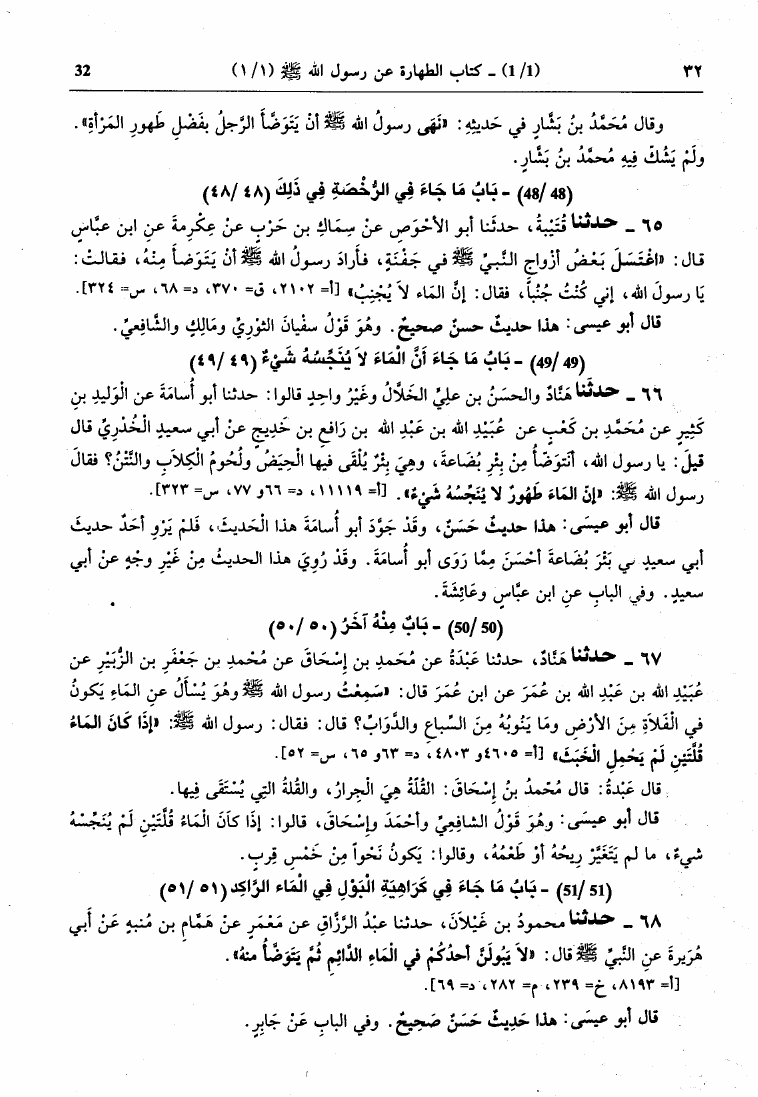 ٣٢ (1/1) ـ كتاب الطهارة عن رسول الله ﷺ (١/١) 32
وقال مُحَمَّدُ بنُ بَشَّارٍ في حَديثِهِ: «نَهَى رسولُ الله ﷺ أنْ يَتَوَضَّأَ الرَّجلُ بفَضْلِ طَهورِ المَرْأةِ».
ولَمْ يَشُكَّ فِيهِ مُحمَّدُ بنُ بَشَّارٍ.
(48/48) - بَابُ مَا جَاءَ فِي الرُّخْصَةِ فِي ذَلِكَ (٤٨/٤٨)
٦٥ ـ حدثنا قُتَيْبةُ، حدثَنا أبو الأحْوَصِ عنْ سِمَاكِ بن حَرْبٍ عنْ عِكْرِمةَ عنِ ابنِ عبَّاسٍ
قال: «اغْتَسَلَ بَعْضُ أزْواجِ النَّبيِّ ﷺ في جَفْنَةٍ، فأرادَ رسولُ الله ﷺ أنْ يَتَوَضأَ مِنْهُ، فقالتْ:
يَا رسولَ الله، إني كُنْتُ جُنُباً، فقال: إنَّ المَاء لاَ يُجْنِبُ» [أ= ٢١٠٢، ق= ٣٧٠، د= ٦٨، س= ٣٢٤].
قال أبو عيسى: هذا حديثٌ حسنٌ صحيحٌ. وهُوَ قَوْلُ سفْيانَ الثوْرِيِّ ومَالِكٍ والشَّافِعيِّ.
(49/49) - بَابُ مَا جَاءَ أَنَّ الْمَاءَ لاَ يُنَجِّسُهُ شَيْءٌ (٤٩/٤٩)
٦٦ ـ حدثَنا هَنَّادٌ والحسَنُ بن عليِّ الخَلاَّلُ وغَيْرُ واحِدٍ قالوا: حدثنا أبو أُسامَةَ عن الْوَلِيدِ بنِ
كَثِيرٍ عن مُحَمَّدِ بن كَعْبٍ عن عُبَيْدِ الله بن عَبْدِ الله بن رَافِعِ بن خَدِيجٍ عنْ أبي سعيدٍ الْخُدْرِيِّ قال
قيلَ: يا رسول الله، أنَتوَضّأُ مِنْ بِئْرِ بُضَاعةَ، وهيَ بِئْرٌ يُلْقَى فيها الْحِيَضُ ولُحومُ الْكِلاَبِ والنَّتْنُ؟ فقالَ
رسول الله ﷺ: «إنَّ المَاءَ طَهُورٌ لاَ يُنَجْسُهُ شَيْءٌ». [أ= ١١١١٩، د= ٦٦و ٧٧، س= ٣٢٣].
قال أبو عيسَى: هذا حديثٌ حَسَنٌ، وقَدْ جَوَّدَ أبو أُسَامَةَ هذا الْحَديثَ، فلَمْ يَرْوِ أحَدٌ حديثَ
أبي سعيدٍ في بَئْرِ بُضَاعةَ أحْسَنَ مِمَّا رَوَى أبو أُسامةَ. وقَدْ رُوِيَ هذا الحديثُ مِنْ غَيْرِ وجْهٍ عنْ أبي
سعيدٍ. وفي البابِ عنِ ابن عبَّاسٍ وعَائِشَةَ.
(50/50) - بَابُ مِنْهُ آخَرُ (٥٠/٥٠)
٦٧ ـ حدثنا هَنَّادٌ، حدثنا عَبْدَةُ عن مُحَمدِ بن إسْحَاقَ عن مُحْمدِ بن جَعْفَرِ بن الزُّبَيْرِ عن
عُبَيْدِ الله بن عَبْدِ الله بن عُمَرَ عن ابن عُمَرَ قال: «سَمِعْتُ رسول الله ﷺ وهُوَ يُسْأَلُ عنِ المَاءِ يَكونُ
في الْفَلاَةِ مِنَ الأرْضِ ومَا يَنُوبُهُ مِنَ السِّباعِ والدَّوَابِّ؟ قال: فقال: رسول الله ﷺ: «إذَا كَانَ المَاءُ
قُلَّتَيْنِ لَمْ يَحْمِلِ الْخَبَثَ» [أ= ٤٦٠٥و ٤٨٠٣، د= ٦٣و ٦٥، س= ٥٢].
قال عَبْدةُ: قال مُحْمدُ بنُ إسْحَاقَ: القُلَّةُ هِيَ الْجِرارُ، والقُلةُ التِي يُسْتَقَى فِيها.
قال أبو عيسَى: وهُوَ قَوْلُ الشافِعِيِّ وأَحْمَدَ وإسْحَاقَ، قالوا: إذَا كانَ المَاءُ قُلَّتَيْنِ لَمْ يُنَجِّسْهُ
شيءٌ، ما لم يَتَغَيَّرْ رِيحُهُ أوْ طَعْمُهُ، وقالوا: يَكونُ نَحْواً مِنْ خَمْسِ قِربٍ.
(51/51) - بَابُ مَا جَاءَ فِي كَرَاهِيَةِ الْبَوْلِ فِي الْمَاء الرَّاكِدِ (٥١/٥١)
٦٨ ـ حدثنا محمودُ بن غَيْلاَنَ، حدثنا عبْدُ الرَّزَّاقِ عن مَعْمَرٍ عنْ هَمَّامِ بن مُنبهٍ عَنْ أَبي
هُرَيرةَ عنِ النَّبيِّ ﷺ قال: «لاَ يَبُولَنَّ أحدُكُمْ في الْمَاءِ الدَّائِمِ ثُمَّ يَتَوَضَّأُ منهُ».
[أ= ٨١٩٣، خ= ٢٣٩، م= ٢٨٢، د= ٦٩].
قال أبو عيسَى: هذا حَدِيثٌ حَسَنٌ صَحِيحٌ. وفي البابِ عَنْ جَابِرٍ.